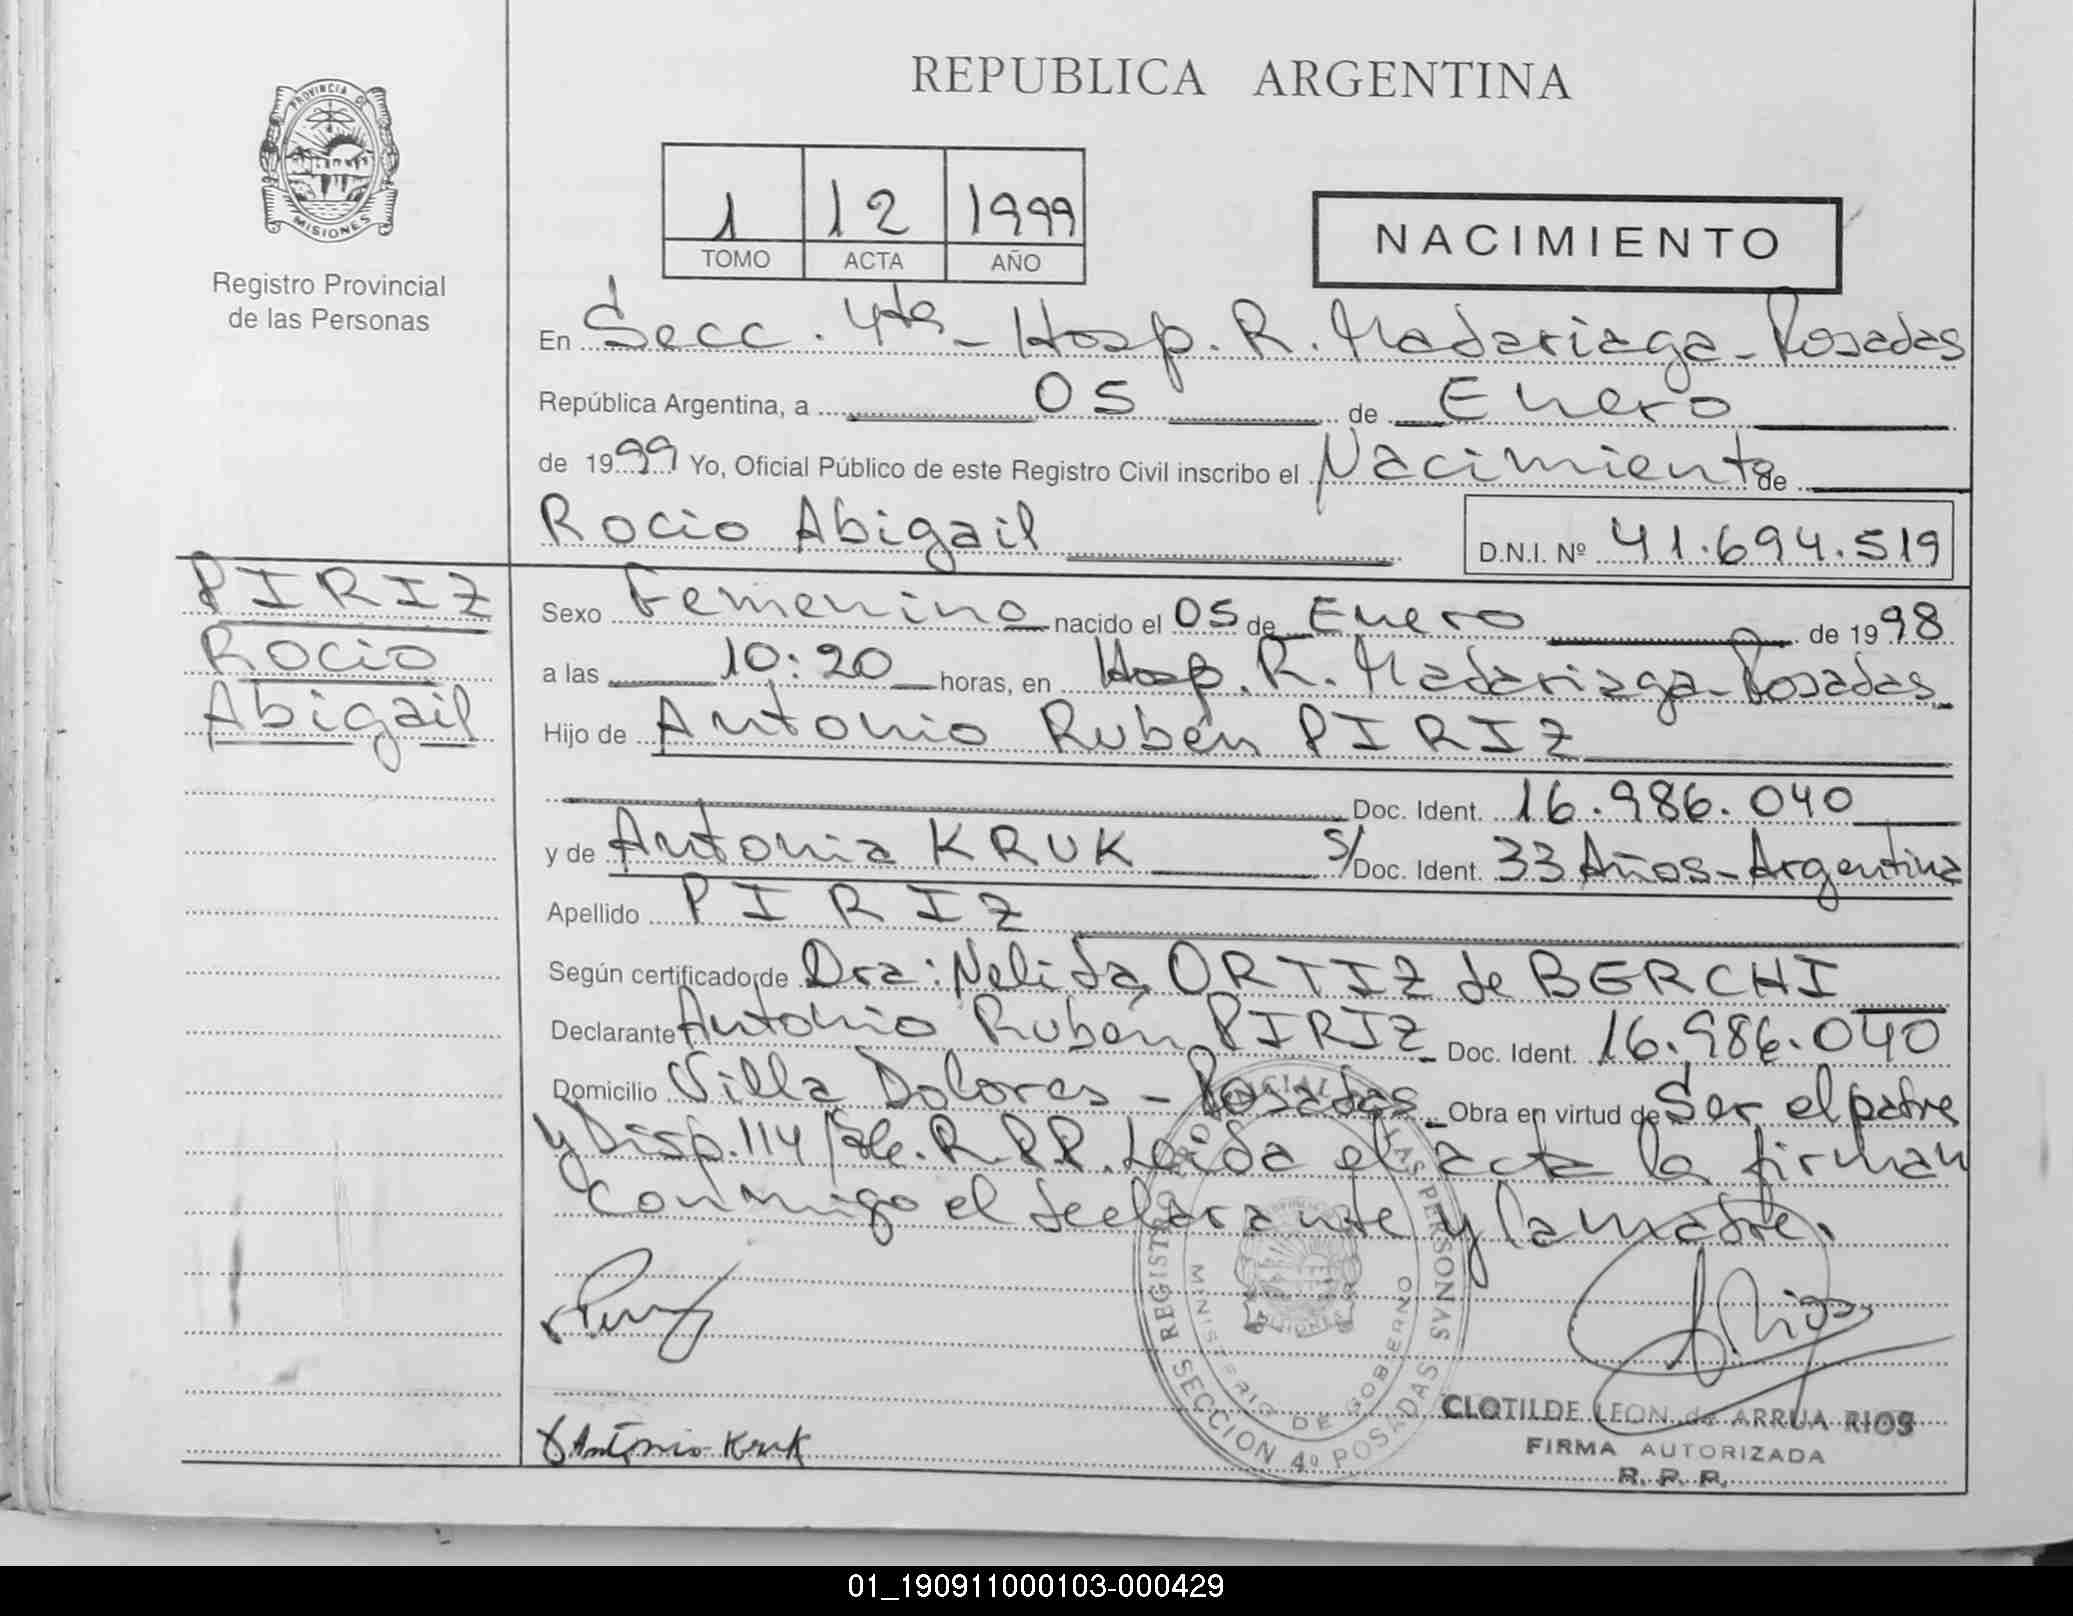 REPUBLICA ARGENTINA
PROVINCIA DE
MISIONES
Registro Provincial
de las Personas
1 12 1999
TOMO ACTA AÑO
NACIMIENTO
En Secc. 4ta - Hosp. R. Madariaga - Posadas
República Argentina, a 05 de Enero
de 1999 Yo, Oficial Público de este Registro Civil inscribo el Nacimiento de
Rocio Abigail D.N.I. Nº 41.694.519
PIRIZ
Rocio
Abigail
Sexo Femenino nacido el 05 de Enero de 1998
a las 10:20 horas, en Hosp. R. Madariaga - Posadas
Hijo de Antonio Rubén PIRIZ
Doc. Ident. 16.986.040
y de Antonia KRUK S/Doc. Ident. 33 Años - Argentina
Apellido PIRIZ
Según certificado de Dra: Nelida ORTIZ de BERCHI
Declarante Antonio Rubén PIRIZ Doc. Ident. 16.986.040
Domicilio Villa Dolores - Posadas Obra en virtud de Ser el padre
y Disp. 114/86. R.P.P. Leida el acta la firman
conmigo el declarante y la madre.
REGISTRO PROVINCIAL DE LAS PERSONAS
MINISTERIO DE GOBERNO
SECCION 4º POSADAS
Antonia Kruk
CLOTILDE LEON de ARRUA RIOS
FIRMA AUTORIZADA
R. P. P.
01_190911000103-000429